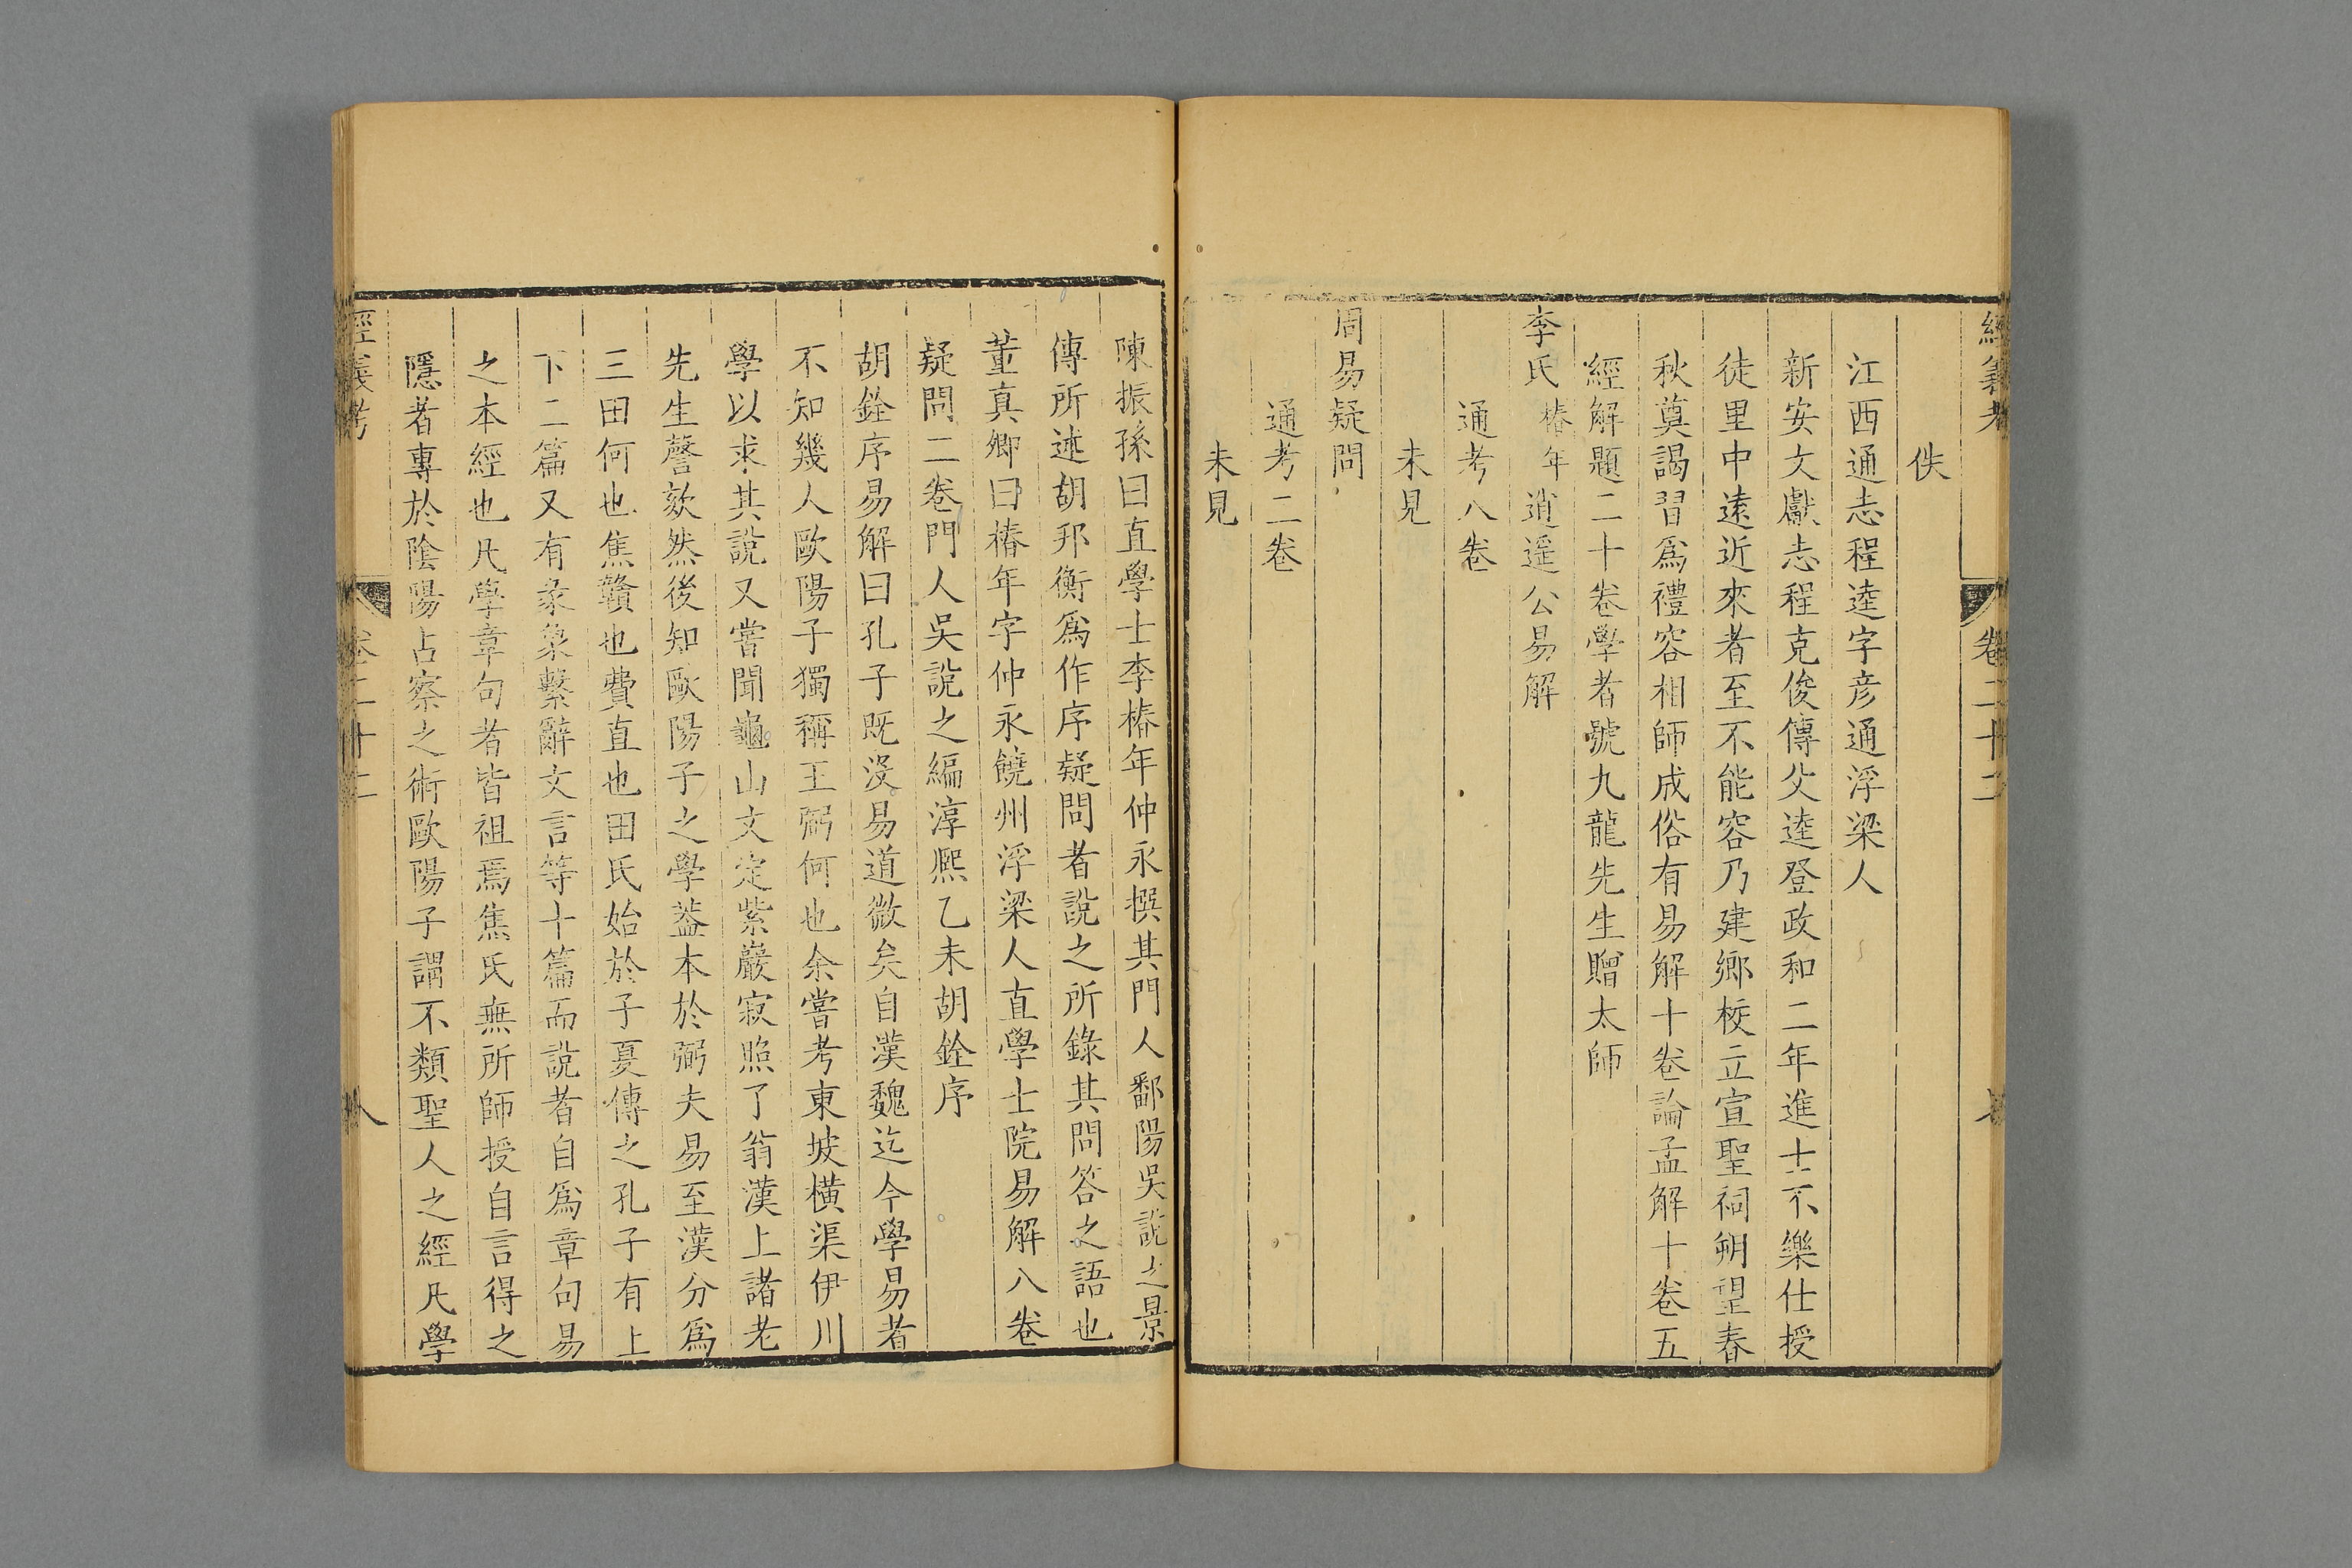 經義考
卷二十二
佚
江西通志程逵字彦通浮梁人
新安文獻志程克俊傳父逵登政和二年進士不樂仕授
徒里中遠近來者至不能容乃建鄉校立宣聖祠朔望春
秋奠謁習爲禮容相師成俗有易解十卷論孟解十卷五
經解題二十卷學者號九龍先生贈太師
李氏椿年逍遥公易解
通考八卷
未見
周易疑問
通考二卷
未見
陳振孫曰直學士李椿年仲永撰其門人鄱陽吳說之景
傳所述胡邦衡爲作序疑問者說之所錄其問答之語也
董真卿曰椿年字仲永饒州浮梁人直學士院易解八卷
疑問二卷門人吳說之編淳熙乙未胡銓序
胡銓序易解曰孔子既没易道微矣自漢魏迄今學易者
不知幾人歐陽子獨稱王弼何也余嘗考東坡橫渠伊川
學以求其說又嘗聞龜山文定紫巖寂照了翁漢上諸老
先生謦欬然後知歐陽子之學葢本於弼夫易至漢分爲
三田何也焦贛也費直也田氏始於子夏傳之孔子有上
下二篇又有彖象繫辭文言等十篇而說者自爲章句易
之本經也凡學章句者皆祖焉焦氏無所師授自言得之
隱者專於陰陽占察之術歐陽子謂不類聖人之經凡學
經義考
卷二十二
八